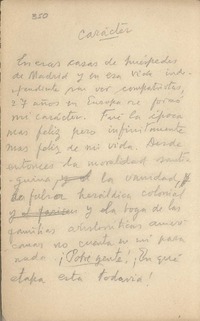 350
Carácter
En esas casas de huéspedes
de Madrid y en esa vida inde-
pendiente sin ver compatriotas,
27 años en Europa se formó
mi carácter. Fué la época
mas feliz pero infinitamente
mas feliz de mi vida. Desde
entonces la moralidad
la vanidad, y
la heráldica colonial
y la boga de las
familias aristocráticas ameri-
canas no cuenta en mi para
nada. ¡Pobre gente! ¡En qué
etapa esta todavia!